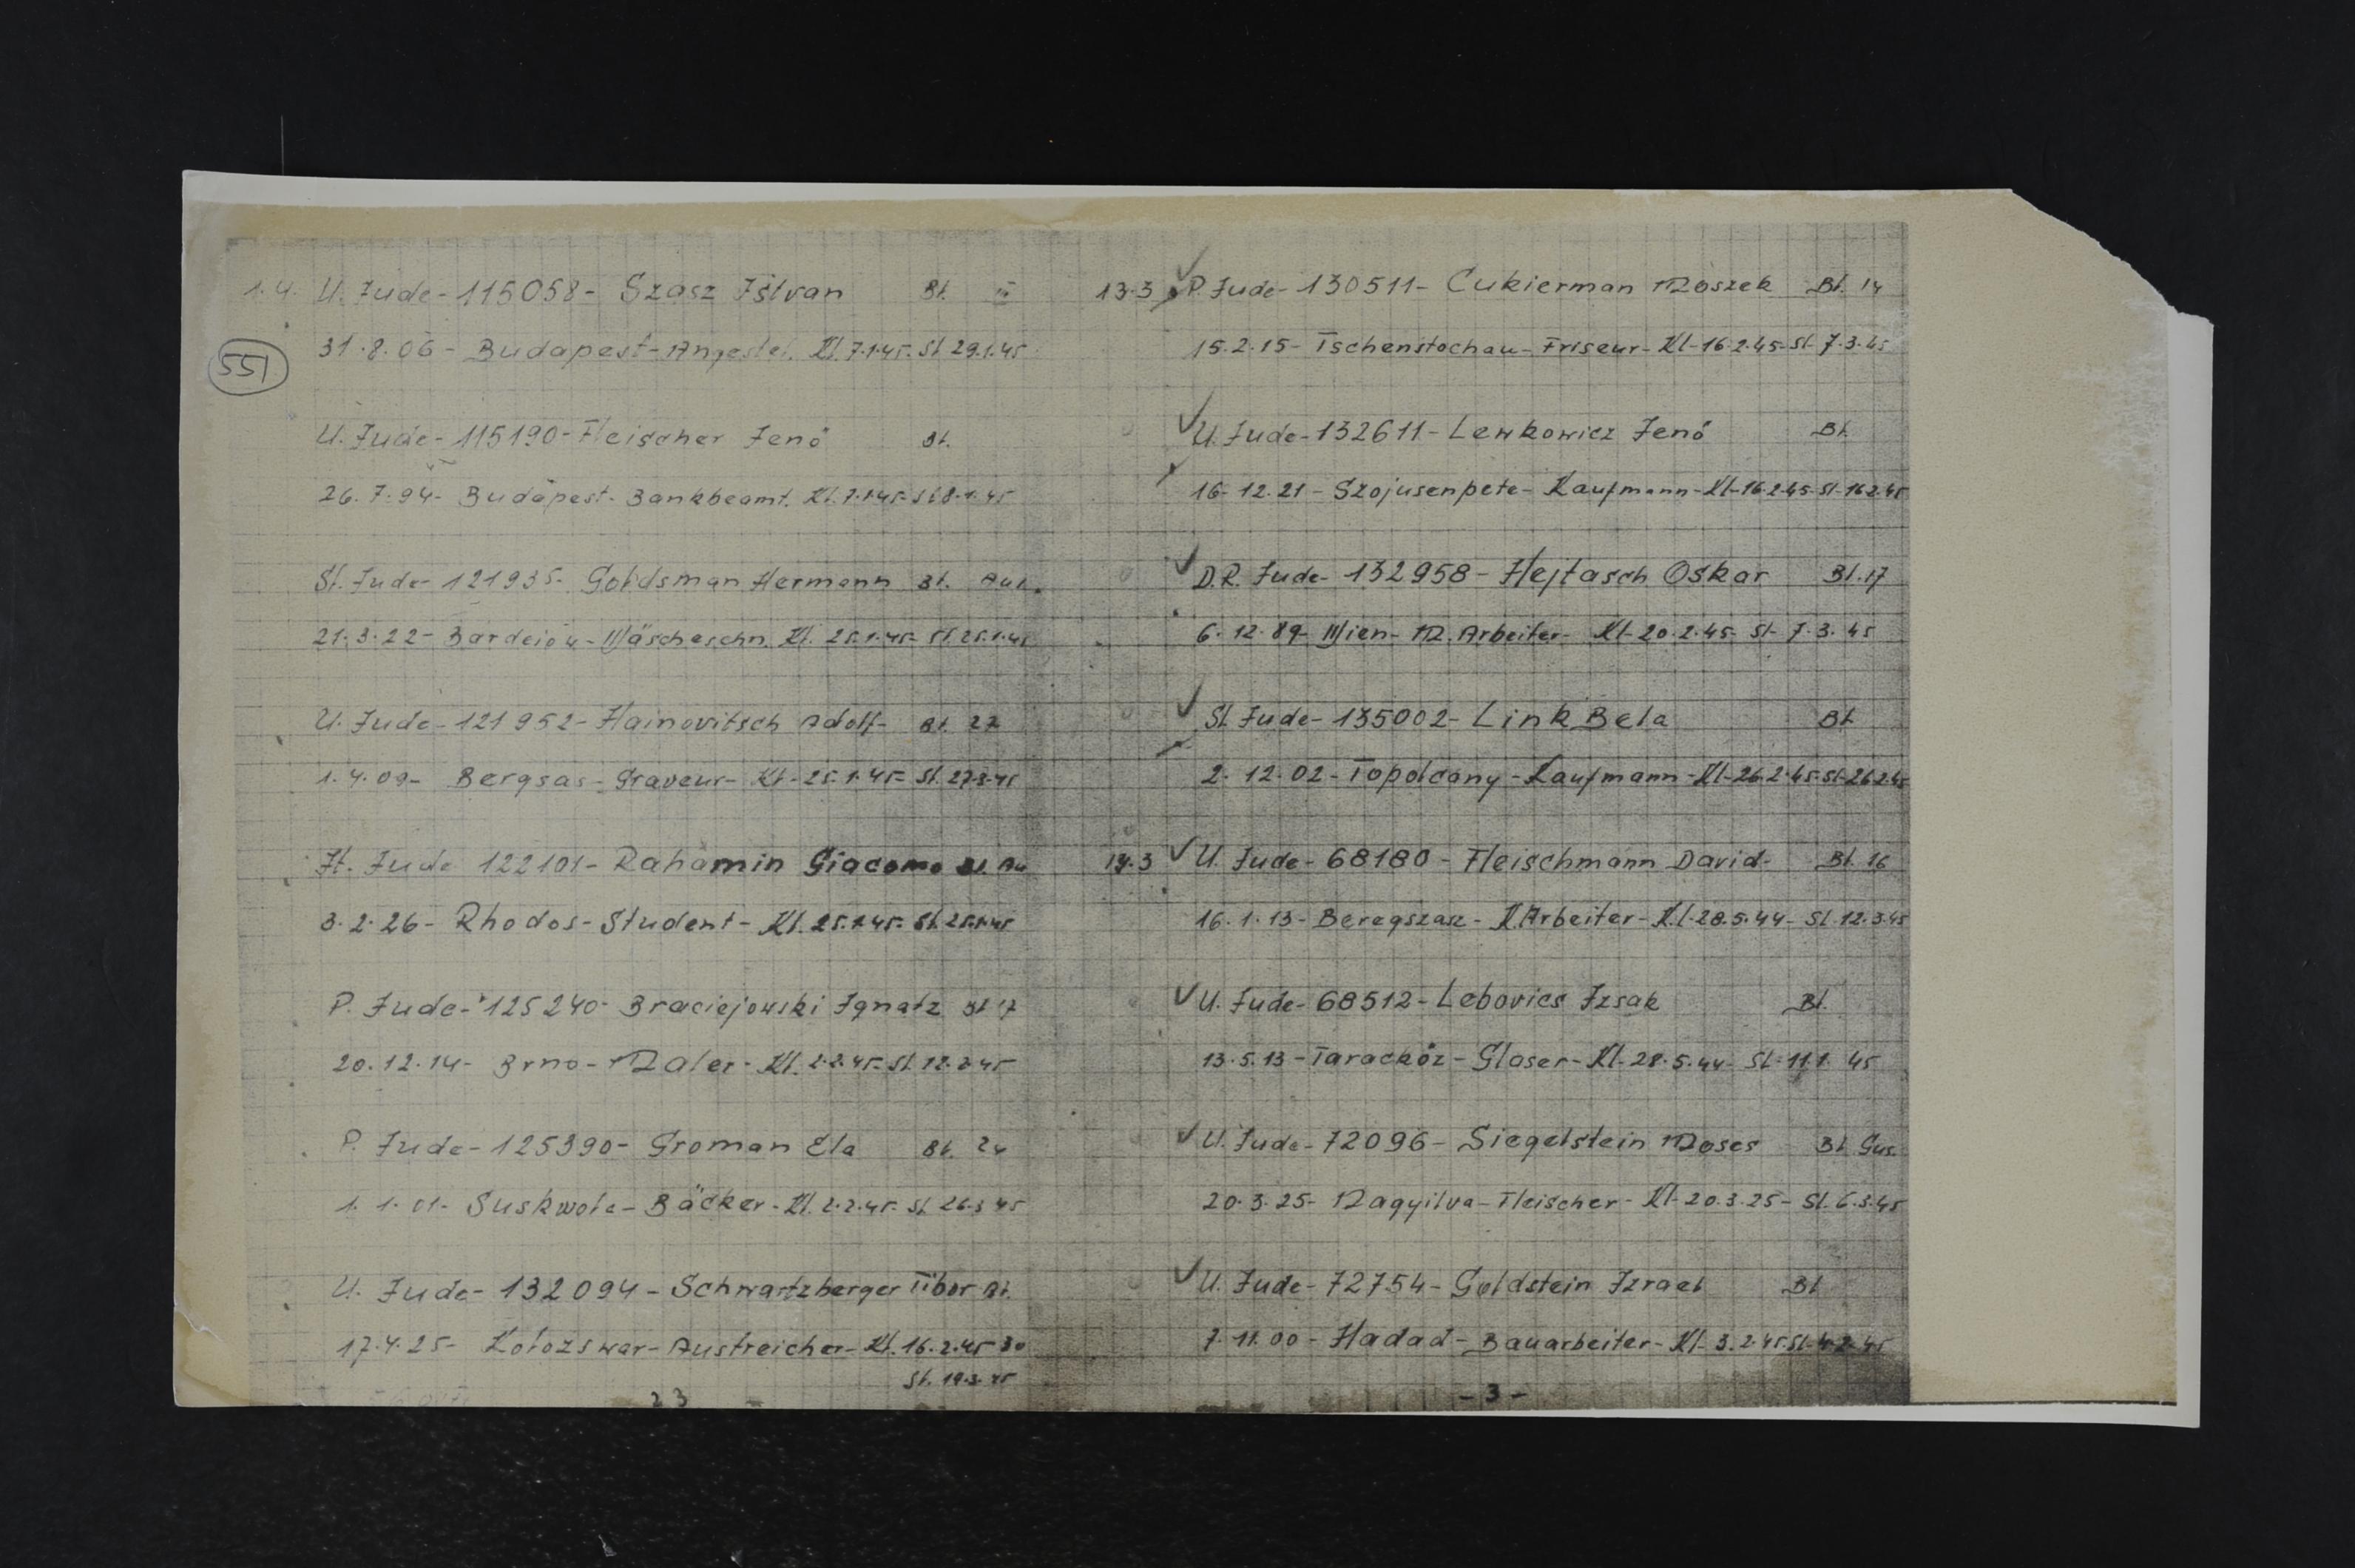 1.4. U. Jude - 115058 - Szasz Istvan Bl.
31.8.06 - Budapest - Angestel. Kl. 7.1.45 - St. 29.1.45
551
U. Jude - 115190 - Fleischer Jenő Bl.
26.7.94 - Budapest - Bankbeamt. Kl. 7.1.45 - St 8.1.45
Sl. Jude - 121935 - Goldsman Hermann Bl.
21.3.22 - Bardeiow - Wäscheschn. Kl. 25.1.45 - St. 25.1.45
U. Jude - 121952 - Hainovitsch Adolf - Bl. 27
1.4.09 - Bergsas - Graveur - Kl - 25.1.45 - St. 27.3.45
It. Jude 122101 - Rahamin Giacomo Bl. Au
3.2.26 - Rhodos - Student - Kl. 25.1.45 - St. 25.1.45
P. Jude - 125240 - Braciejowski Ignatz Bl 17
20.12.14 - Brno - Maler - Kl. 2.2.45 - St. 12.3.45
P. Jude - 125390 - Groman Ela Bl. 24
1.1.01 - Suskwola - Bäcker - Kl. 2.2.45 - St. 26.3.45
U. Jude - 132094 - Schwartzberger Tibor Bl.
17.4.25 - Kolozswar - Austreicher - Kl. 16.2.45 30
St. 19.3.45
23
13.3 P. Jude - 130511 - Cukierman Moszek Bl. 14
15.2.15 - Tschenstochau - Friseur - Kl - 16.2.45 - St - 7.3.45
U. Jude - 132611 - Lewkowicz Jenő Bl.
16.12.21 - Szojusenpete - Kaufmann - Kl - 16.2.45 - St - 16.2.45
D.R. Jude - 132958 - Hejtasch Oskar Bl. 17
6.12.89 - Wien - M. Arbeiter - Kl - 20.2.45 - St - 7.3.45
Sl. Jude - 135002 - Link Bela Bl.
2.12.02 - Topolcany - Kaufmann - Kl - 26.2.45 - St - 26.2.45
14.3 U. Jude - 68180 - Fleischmann David - Bl. 16
16.1.13 - Beregszasz - M. Arbeiter - Kl - 28.5.44 - St. 12.3.45
U. Jude - 68512 - Lebovics Izsak Bl.
13.5.13 - Tarackőz - Glaser - Kl - 28.5.44 - St - 11.1.45
U. Jude - 72096 - Siegelstein Moses Bl. Gus.
20.3.25 - Nagyilva - Fleischer - Kl - 20.3.25 - St. 6.3.45
U. Jude - 72754 - Goldstein Izrael Bl
7.11.00 - Hadad - Bauarbeiter - Kl - 3.2.45 - St - 4.2.45
- 3 -